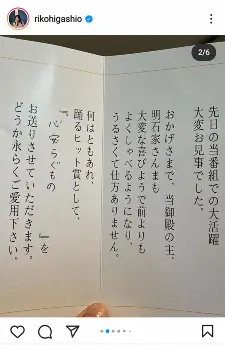 rikohigashio
2/6
先日の当番組での大活躍
大変お見事でした。
おかげさまで、当御殿の主、
明石家さんまも
大変な喜びようで前よりも
よくしゃべるようになり、
うるさくて仕方ありません。
何はともあれ、
踊るヒット賞として、
『心安らぐもの』を
お送りさせていただきます。
どうか永らくご愛用下さい。